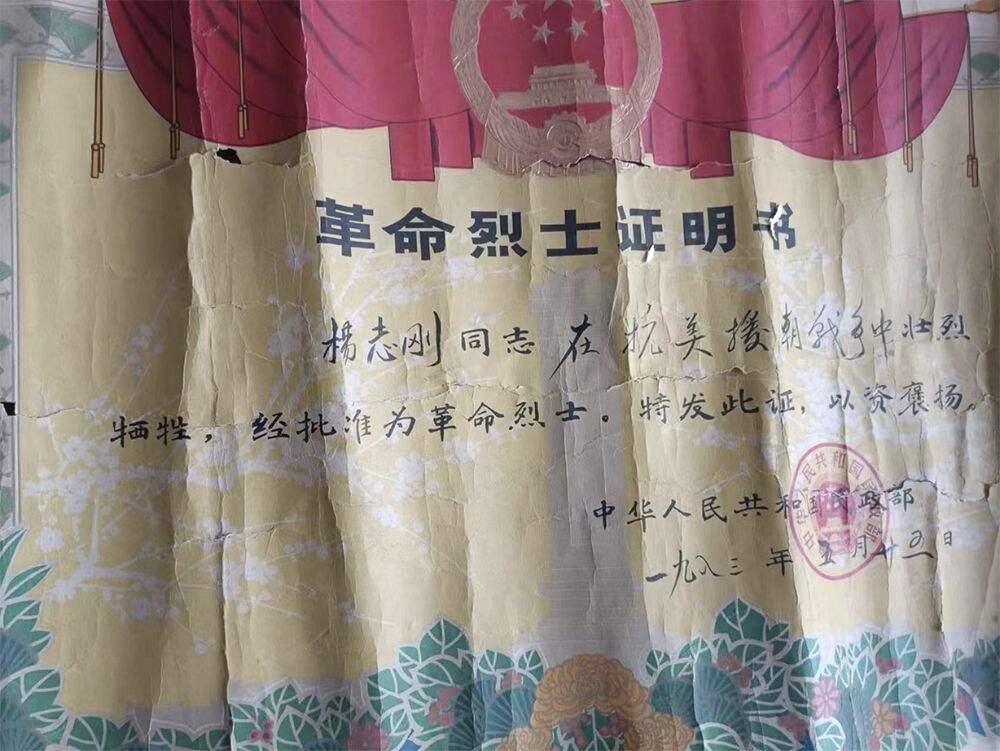 革命烈士证明书
杨志刚同志在抗美援朝战争中壮烈
牺牲，经批准为革命烈士。特发此证，以资褒扬。
中华人民共和国民政部
一九八三年五月十五日
中华人民共和国民政部